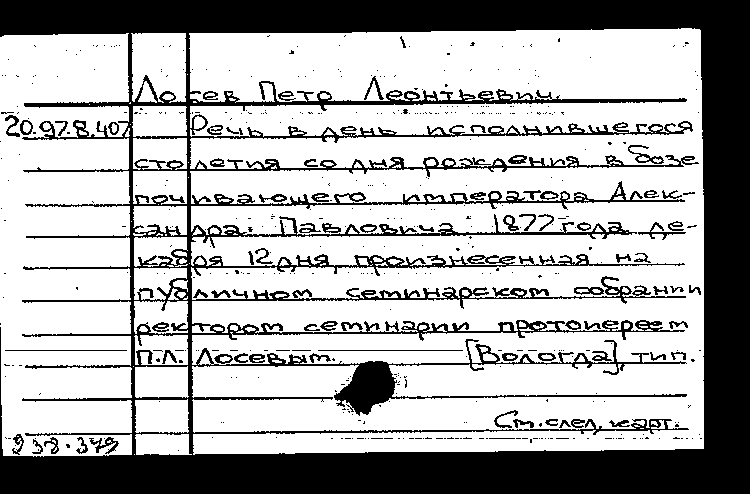 Лосев, Петр Леонтьевич.
20.97.8.407 Речь в день исполнившегося
столетия со дня рождения в бозе
почивающего императора Алек-
сандра Павловича 1877 года де-
кабря 12 дня, произнесенная на
публичном семинарском собрании
ректором семинарии протоиереем
П.Л. Лосевым. [Вологда], тип.
См. след, карт.
938.379